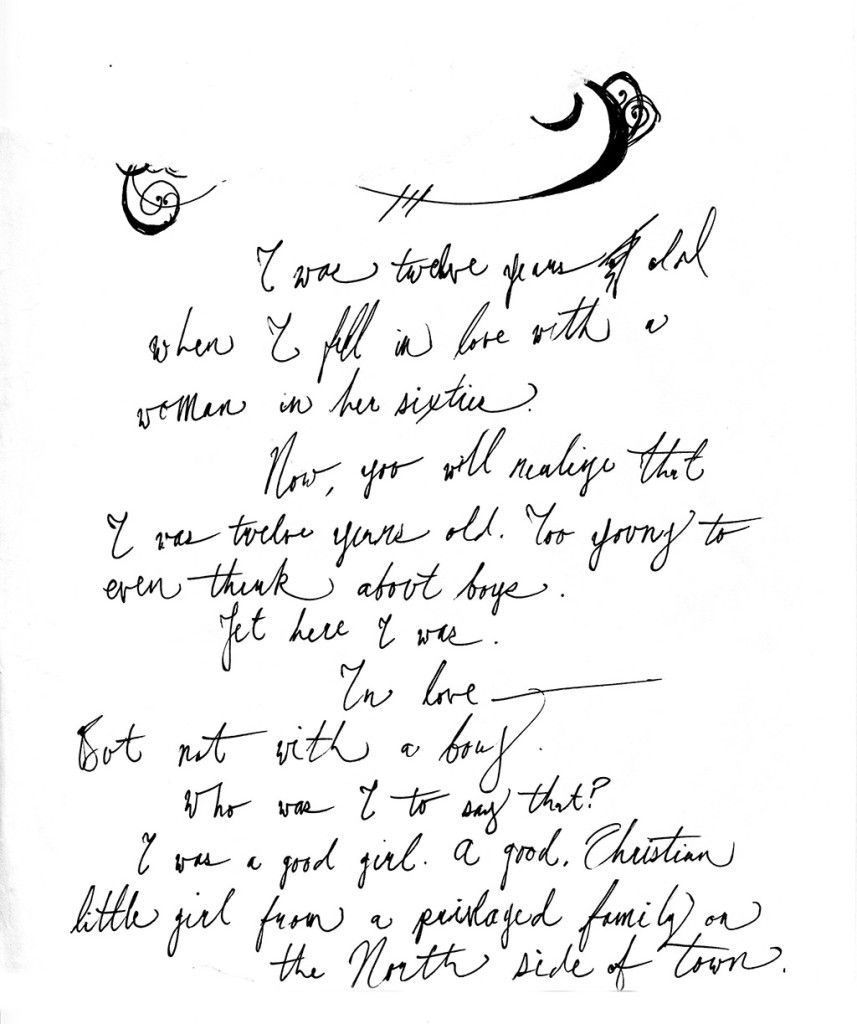 I was twelve years old
when I fell in love with a
woman in her sixties.
Now, you will realize that
I was twelve years old. Too young to
even think about boys.
Yet here I was.
In love —
But not with a boy.
Who was I to say that?
I was a good girl. A good, Christian
little girl from a privlaged family on
the North side of town.